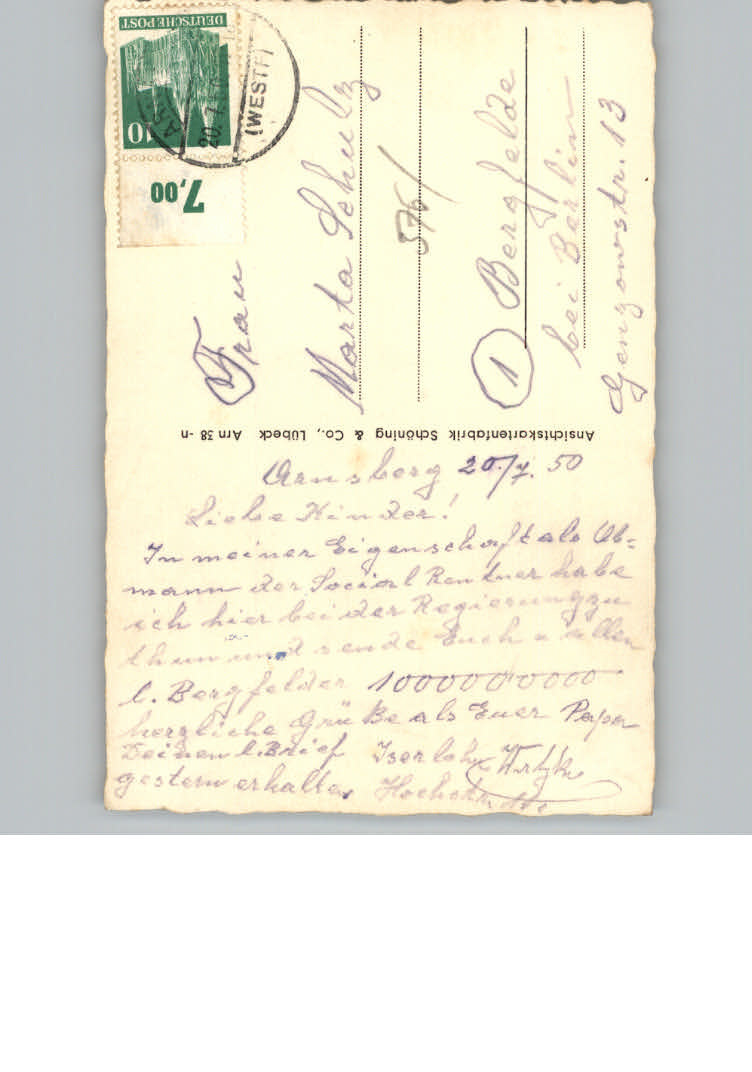 DEUTSCHE POST
10
7,00
20.7.
(WESTF)
Frau
Marta Schulz
576/
1 Bergfelde
bei Berlin
Genzowstr. 13
Ansichtskartenfabrik Schöning & Co., Lübeck Arn 38-n
Arnsberg 20/7. 50
Liebe Kinder!
In meiner Eigenschaft als Ob=
mann der Social Rentner habe
ich hier bei der Regierung zu
thun und sende Euch u allen
l. Bergfelder 10000000000
herzliche Grüße als Euer Papa
Deinen l. Brief Iserlohn
gestern erhalten